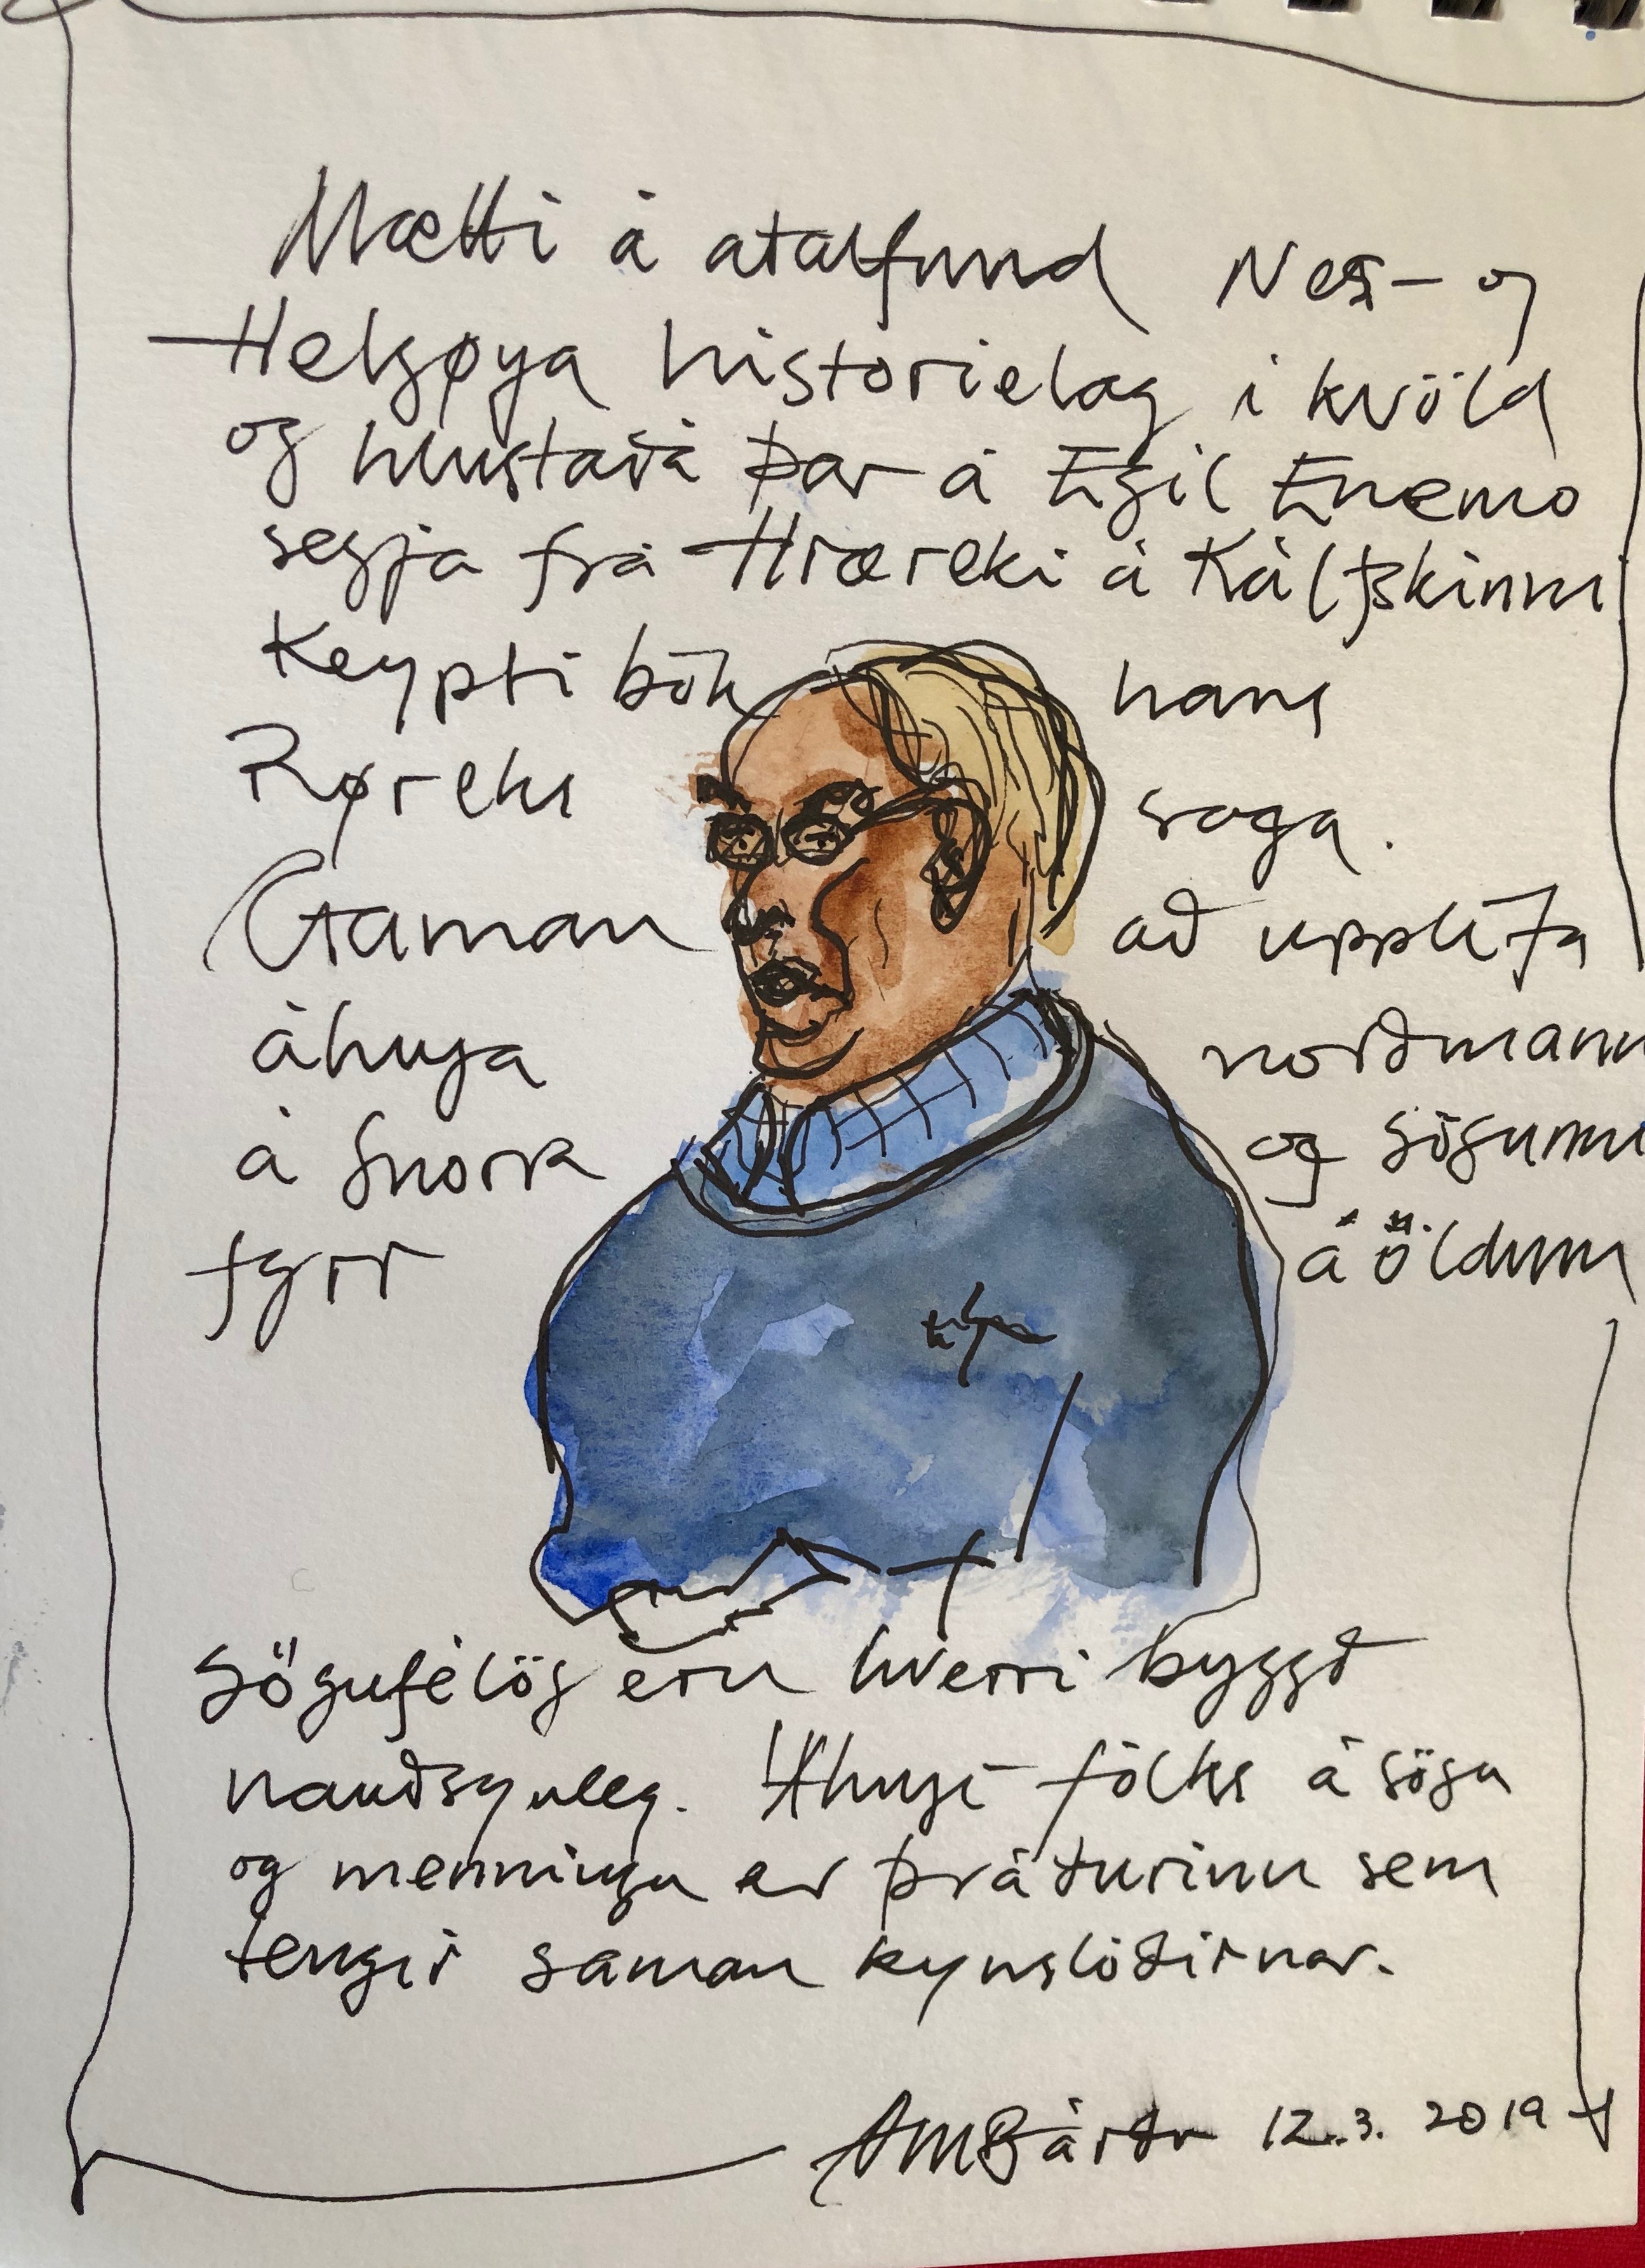 Mætti á aðalfund Nes- og
Helgøya historielag í kvöld
og hlustaði þar á Egil Enemo
segja frá Hræreki á Kálfskinni
Keypti bók hans
Røreks saga.
Gaman að upplifa
áhuga norðmann
á Snorra og sögunni
fyrr á öldum
Sögufélög eru hverri byggð
nauðsynleg. Áhugi fólks á sögu
og menningu er þráðurinn sem
tengir saman kynslóðirnar.
12.3. 2019